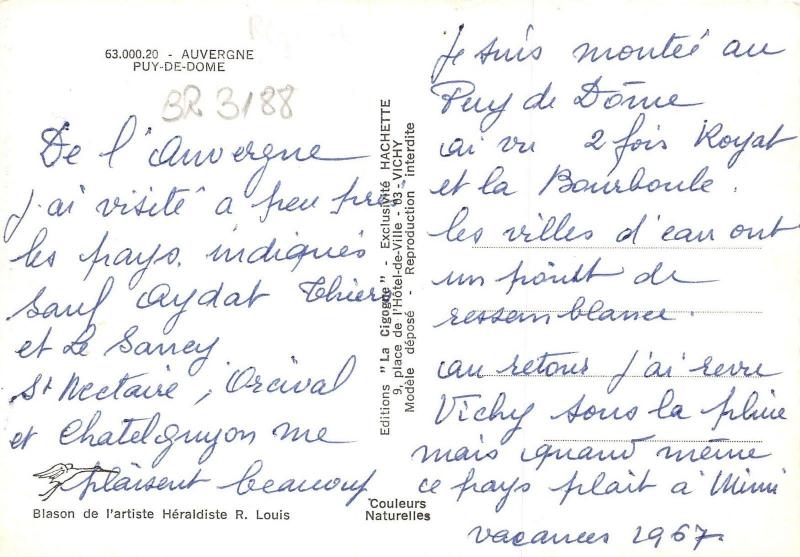 63.000.20 - AUVERGNE
PUY-DE-DOME
BR 3/88
De l'Auvergne
j'ai visité à peu près
les pays indiqués
sauf Aydat Thiers
et Le Sancy
St Nectaire, Orcival
et Chatelguyon me
plaisent beaucoup
Blason de l'artiste Héraldiste R. Louis
Editions "La Cigogne" - Exclusivité HACHETTE
9, place de l'Hôtel-de-Ville - 03 - VICHY
Modèle déposé - Reproduction interdite
Couleurs
Naturelles
Je suis montée au
Puy de Dôme
ai vu 2 fois Royat
et la Bourboule.
les villes d'eau ont
un point de
ressemblance.
au retour j'ai revu
Vichy sous la pluie
mais quand même
ce pays plait à Mimi
vacances 1967.